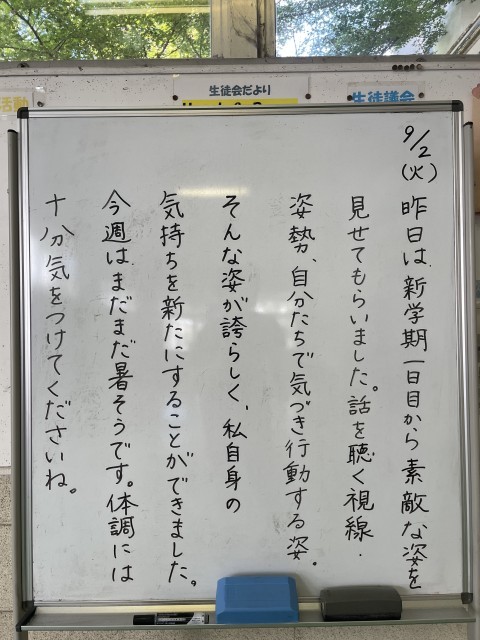 活動
生徒会だより
生徒議会
9/2(火)
昨日は、新学期一日目から素敵な姿を
見せてもらいました。話を聴く視線・
姿勢、自分たちで気づき行動する姿。
そんな姿が誇らしく、私自身の
気持ちを新たにすることができました。
今週は、まだまだ暑そうです。体調には
十分気をつけてくださいね。